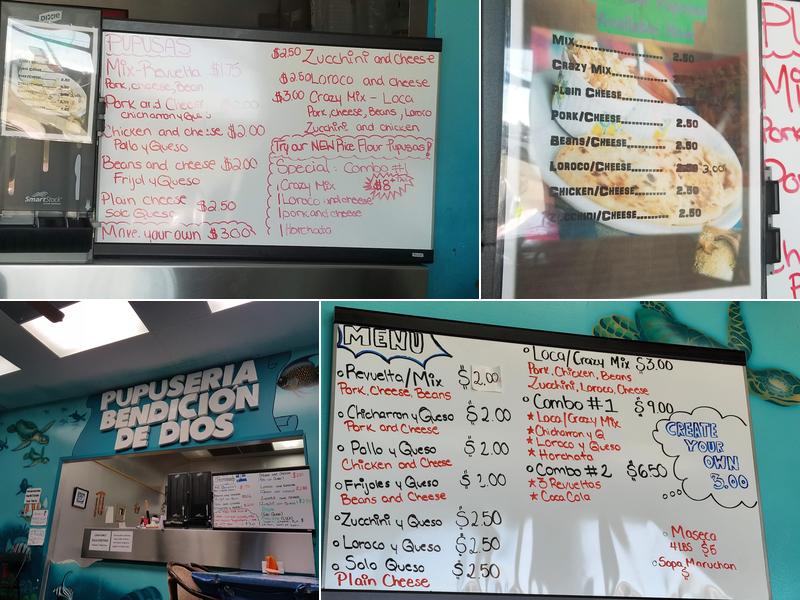 DIXIE
SmartStock
PUPUSAS
Mix-Revuelta $1.75
Pork, cheese, Bean
Pork and Cheese
chicharron y Queso
Chicken and cheese $2.00
Pollo y Queso
Beans and cheese $2.00
Frijol y Queso
Plain cheese $2.50
Solo Queso
Make your own $3.00
$2.50 Zucchini and cheese
$2.50 Loroco and cheese
$3.00 Crazy Mix - Loca
Pork, cheese, Beans, Loroco
Zucchini and chicken
Try our NEW Rice Flour Pupusas!
Special: Combo #1
$8
1 Crazy Mix
1 Loroco and cheese
1 pork and cheese
1 Horchata
Mix 2.50
Crazy Mix
Plain Cheese
Pork/Cheese 2.50
Beans/Cheese 2.50
Loroco/Cheese 3.00
Chicken/Cheese 2.50
Zucchini/Cheese 2.50
PUPUSERIA
BENDICION
DE DIOS
MENU
Revuelta/Mix $2.00
Pork, Cheese, Beans
Chicharron y Queso $2.00
Pork and Cheese
Pollo y Queso $2.00
Chicken and Cheese
Frijoles y Queso $2.00
Beans and Cheese
Zucchini y Queso $2.50
Loroco y Queso $2.50
Solo Queso $2.50
Plain Cheese
Loca/Crazy Mix $3.00
Pork, Chicken, Beans
Zucchini, Loroco, Cheese
Combo #1 $9.00
* Loca/Crazy Mix
* Chicharron y Q
* Loroco y Queso
* Horchata
Combo #2 $6.50
* 3 Revueltas
* Coca Cola
CREATE
YOUR
OWN
3.00
Maseca
4LBS $5
Sopa Maruchan
$